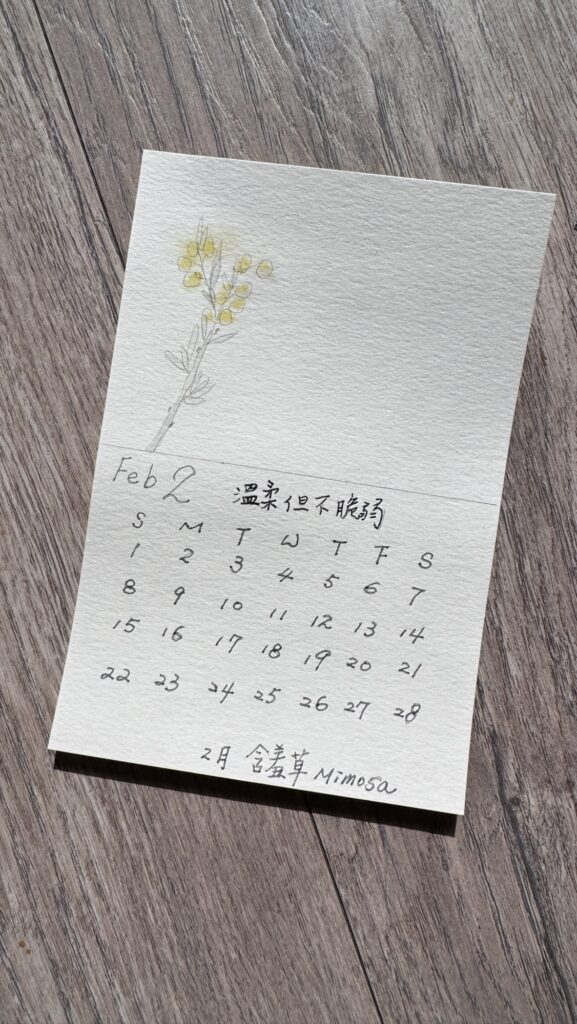 Feb 2 溫柔但不脆弱
S M T W T F S
1 2 3 4 5 6 7
8 9 10 11 12 13 14
15 16 17 18 19 20 21
22 23 24 25 26 27 28
2月 含羞草 Mimosa